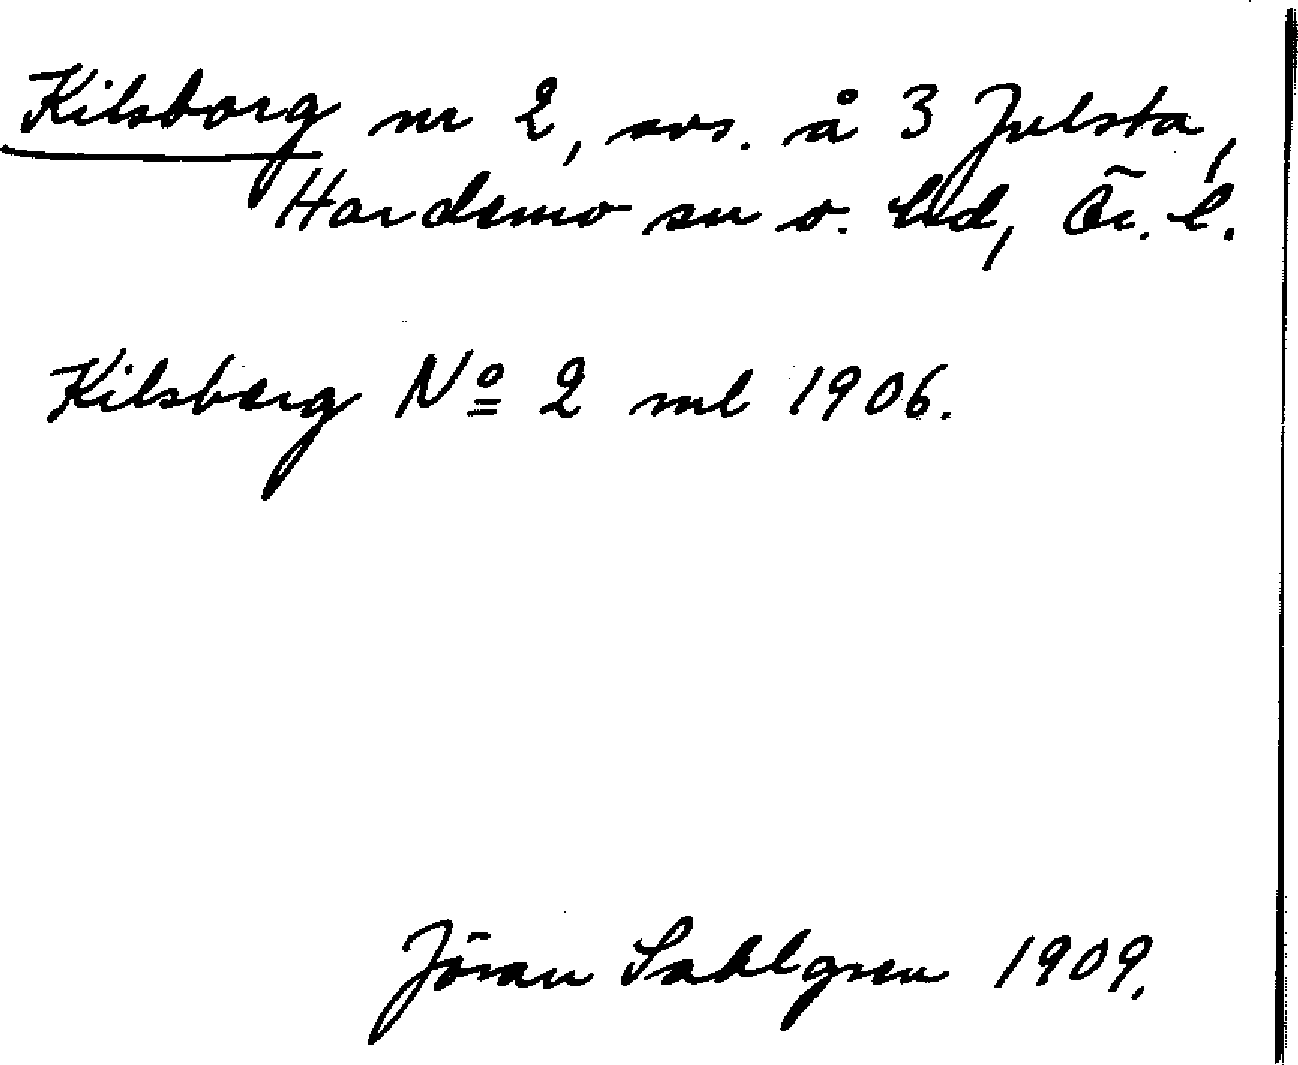 Kilsborg nr 2, avs. å 3 Julsta,
Hardemo sn o. hd, Ör. l.
Kilsberg Nº 2 ml 1906.
Jöran Sahlgren 1909.